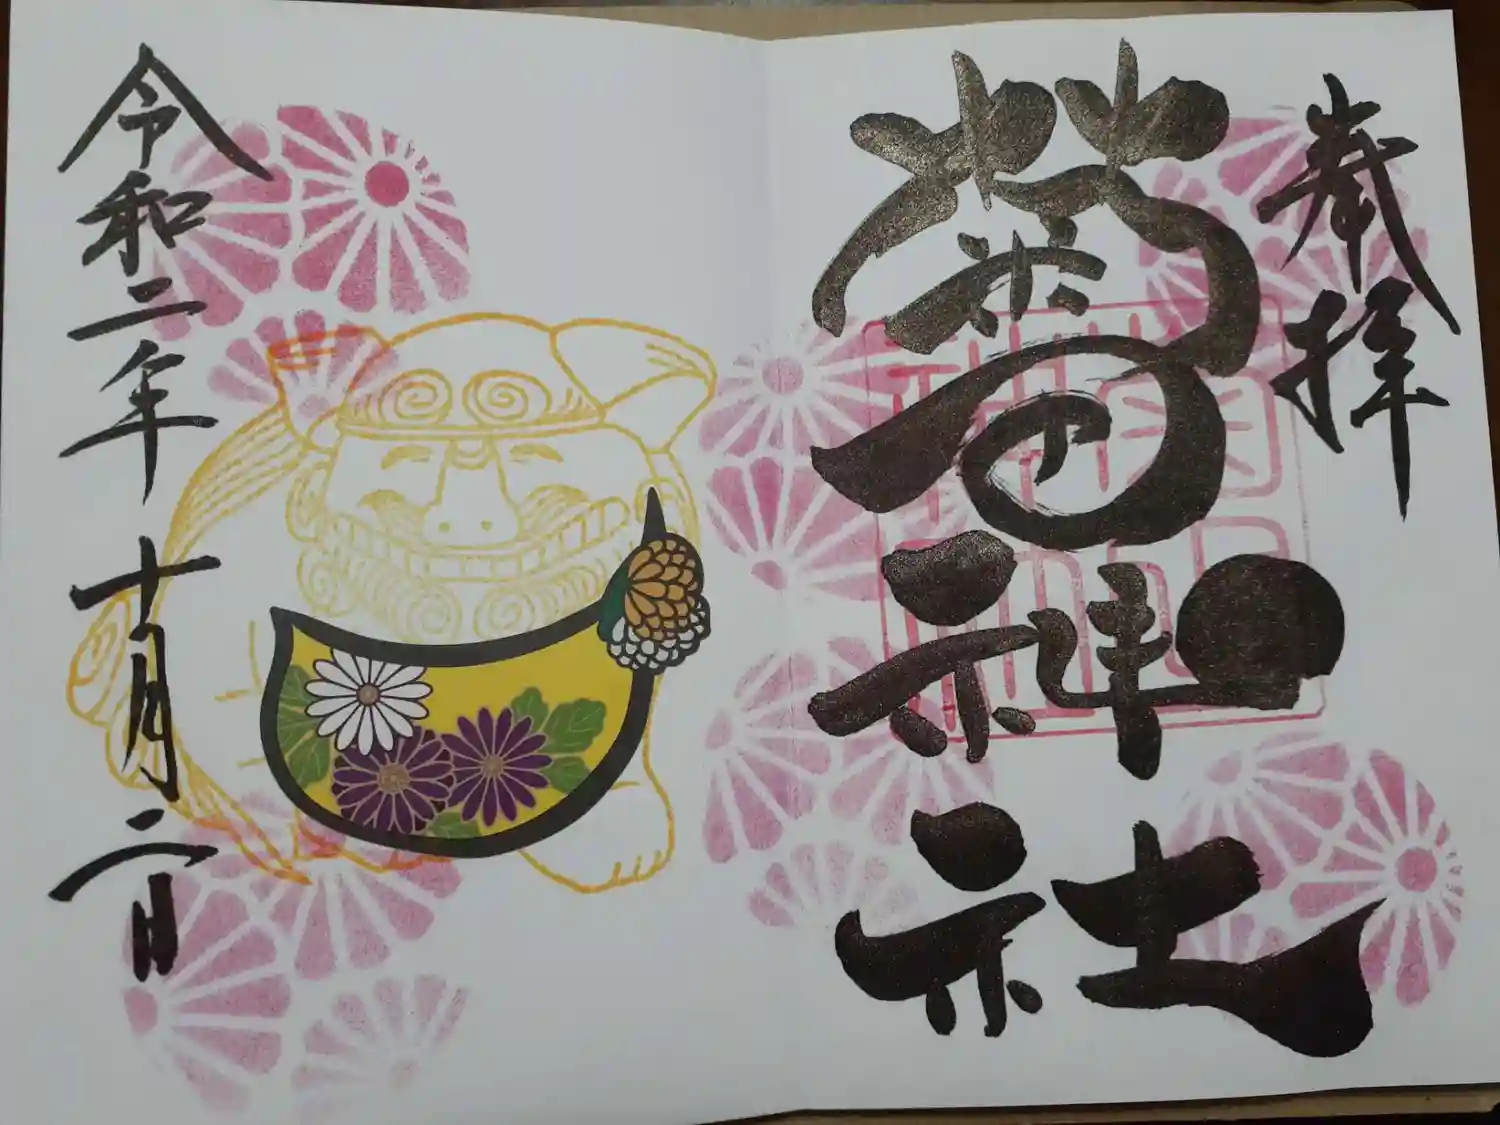 奉拝
菊田神社
令和二年十月二日